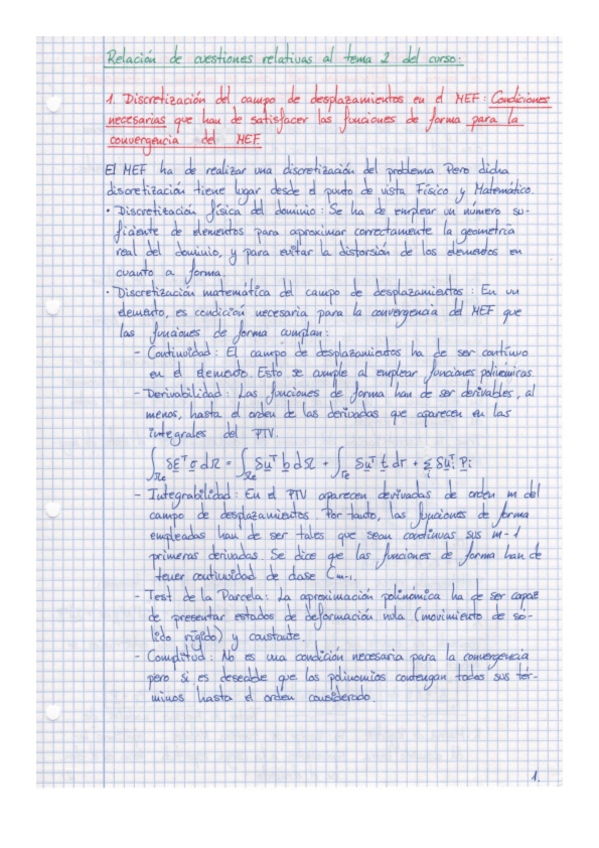 Relación de cuestiones relativas al tema 2 del curso:
1. Discretización del campo de desplazamientos en el MEF: Condiciones
necesarias que han de satisfacer las funciones de forma para la
convergencia del MEF.
El MEF ha de realizar una discretización del problema. Pero dicha
discretización tiene lugar desde el punto de vista Físico y Matemático.
· Discretización física del dominio: Se ha de emplear un número su-
ficiente de elementos para aproximar correctamente la geometría
real del dominio, y para evitar la distorsión de los elementos en
cuanto a forma.
· Discretización matemática del campo de desplazamientos: En un
elemento, es condición necesaria para la convergencia del MEF que
las funciones de forma cumplan:
- Continuidad: El campo de desplazamientos ha de ser continuo
en el elemento. Esto se cumple al emplear funciones polinómicas.
- Derivabilidad: Las funciones de forma han de ser derivables, al
menos, hasta el orden de las derivadas que aparecen en las
integrales del PTV.
∫Ωe δε^T σ dΩ = ∫Ωe δu^T b dΩ + ∫Γe δu^T t dΓ + Σi δui^T Pi
- Integrabilidad: En el PTV aparecen derivadas de orden m del
campo de desplazamientos. Por tanto, las funciones de forma
empleadas han de ser tales que sean continuas sus m-1
primeras derivadas. Se dice que las funciones de forma han de
tener continuidad de clase Cm-1.
- Test de la Parcela: La aproximación polinómica ha de ser capaz
de presentar estados de deformación nula (movimiento de só-
lido rígido) y constante.
- Complitud: No es una condición necesaria para la convergencia
pero si es deseable que los polinomios contengan todos sus tér-
minos hasta el orden considerado.
1.